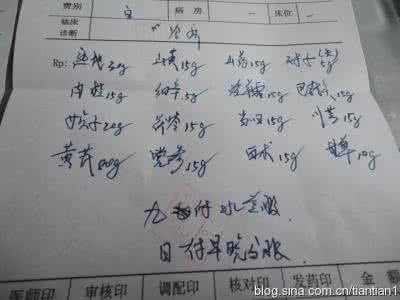 费别 自 病房 一 床位 一
临床
诊断
Rp: 熟地 g 山萸15g 山药15g 附子(先)5g
肉桂15g 细辛15g 15g 巴戟 15g
20g 茯苓15g 当归15g 川芎15g
黄芪 g 党参15g 白术15g 甘草10g
九付水煎服
日一付早晚分服
医师印 审核印 调配印 核对印 发药印 金 额
blog.sina.com.cn/tiantian1